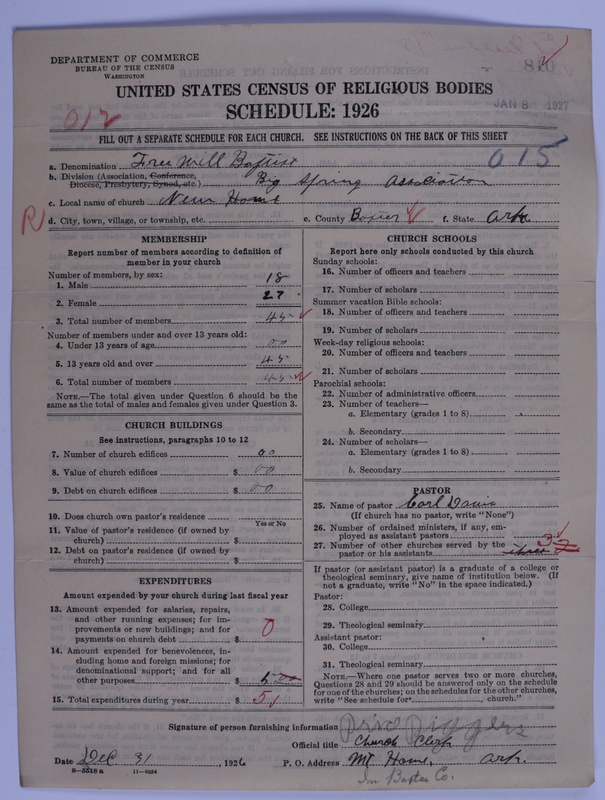 DEPARTMENT OF COMMERCE
BUREAU OF THE CENSUS
WASHINGTON
810
UNITED STATES CENSUS OF RELIGIOUS BODIES
SCHEDULE: 1926
JAN 8 1927
012
FILL OUT A SEPARATE SCHEDULE FOR EACH CHURCH. SEE INSTRUCTIONS ON THE BACK OF THIS SHEET
015
a. Denomination Free Will Baptist
b. Division (Association, Conference, Diocese, Presbytery, Synod, etc.) Big Spring Association
c. Local name of church New Home
R
d. City, town, village, or township, etc. e. County Baxter f. State Ark
MEMBERSHIP
Report number of members according to definition of member in your church
Number of members, by sex:
1. Male 18
2. Female 27
3. Total number of members 45
Number of members under and over 13 years old:
4. Under 13 years of age 00
5. 13 years old and over 45
6. Total number of members 45
NOTE.—The total given under Question 6 should be the same as the total of males and females given under Question 3.
CHURCH BUILDINGS
See instructions, paragraphs 10 to 12
7. Number of church edifices 00
8. Value of church edifices $ 00
9. Debt on church edifices $ 00
10. Does church own pastor's residence
Yes or No
11. Value of pastor's residence (if owned by church) $
12. Debt on pastor's residence (if owned by church) $
EXPENDITURES
Amount expended by your church during last fiscal year
13. Amount expended for salaries, repairs, and other running expenses; for improvements or new buildings; and for payments on church debt $ 0
14. Amount expended for benevolences, including home and foreign missions; for denominational support; and for all other purposes $ 5 00
15. Total expenditures during year $ 5
CHURCH SCHOOLS
Report here only schools conducted by this church
Sunday schools:
16. Number of officers and teachers
17. Number of scholars
Summer vacation Bible schools:
18. Number of officers and teachers
19. Number of scholars
Week-day religious schools:
20. Number of officers and teachers
21. Number of scholars
Parochial schools:
22. Number of administrative officers
23. Number of teachers—
a. Elementary (grades 1 to 8)
b. Secondary
24. Number of scholars—
a. Elementary (grades 1 to 8)
b. Secondary
PASTOR
25. Name of pastor Carl Davis
(If church has no pastor, write "None")
26. Number of ordained ministers, if any, employed as assistant pastors
27. Number of other churches served by the pastor or his assistants three 3
If pastor (or assistant pastor) is a graduate of a college or theological seminary, give name of institution below. (If not a graduate, write "No" in the space indicated.)
Pastor:
28. College
29. Theological seminary
Assistant pastor:
30. College
31. Theological seminary
NOTE.—Where one pastor serves two or more churches, Questions 28 and 29 should be answered only on the schedule for one of the churches; on the schedules for the other churches, write "See schedule for church."
Signature of person furnishing information
Official title Church Clerk
Date Dec 31, 1926 P. O. Address Mt Home, Ark.
8—5518 a 11—9034
In Baxter Co.